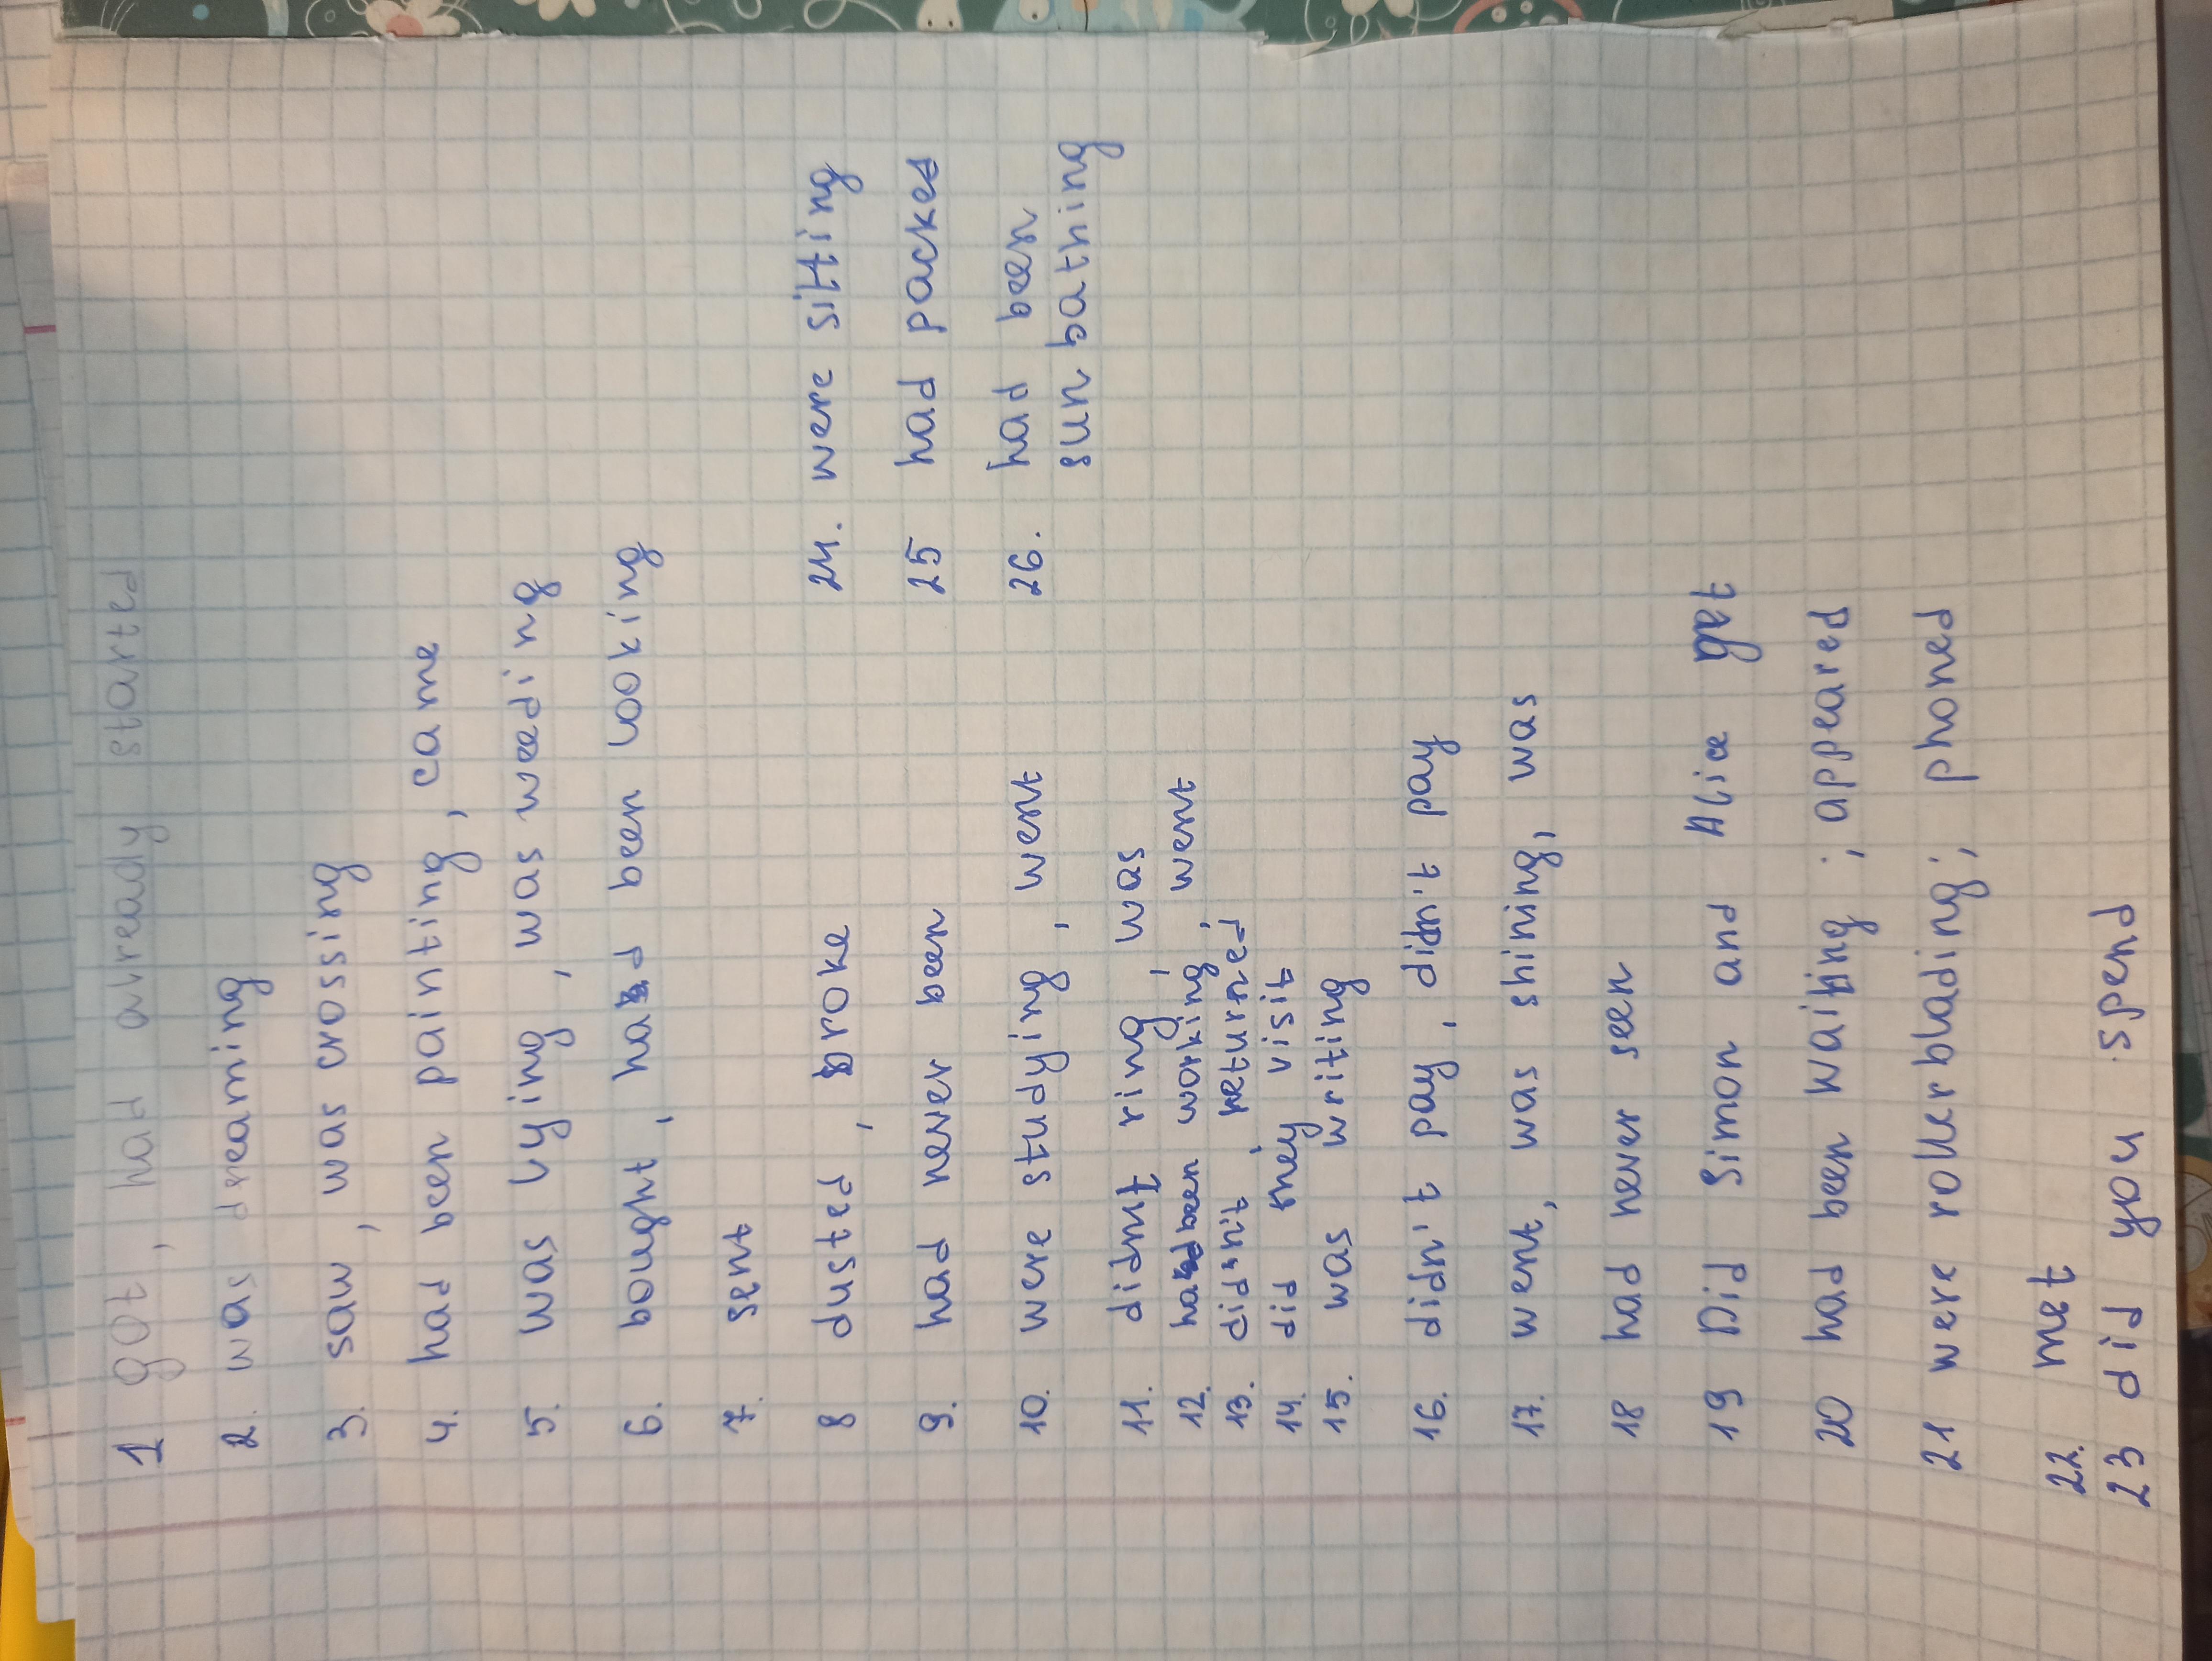 1 got, had already started
2. was dreaming
3. saw, was crossing
4. had been painting, came
5. was lying, was weeding
6. bought, had been looking
7. sent
8 dusted, broke
9. had never been
10. were studying, went
11. didnt ring, was
12. had been working, went
13. did'nit, returned
14. did they visit
15. was writing
16. didn't pay, didn't pay
17. went, was shining, was
18 had never seen
19 Did Simon and Alice get
20 had been waiting; appeared
21 were rollerblading; phoned
22. met
23 did you spend
24. were sitting
25 had packed
26. had been
sun bathing